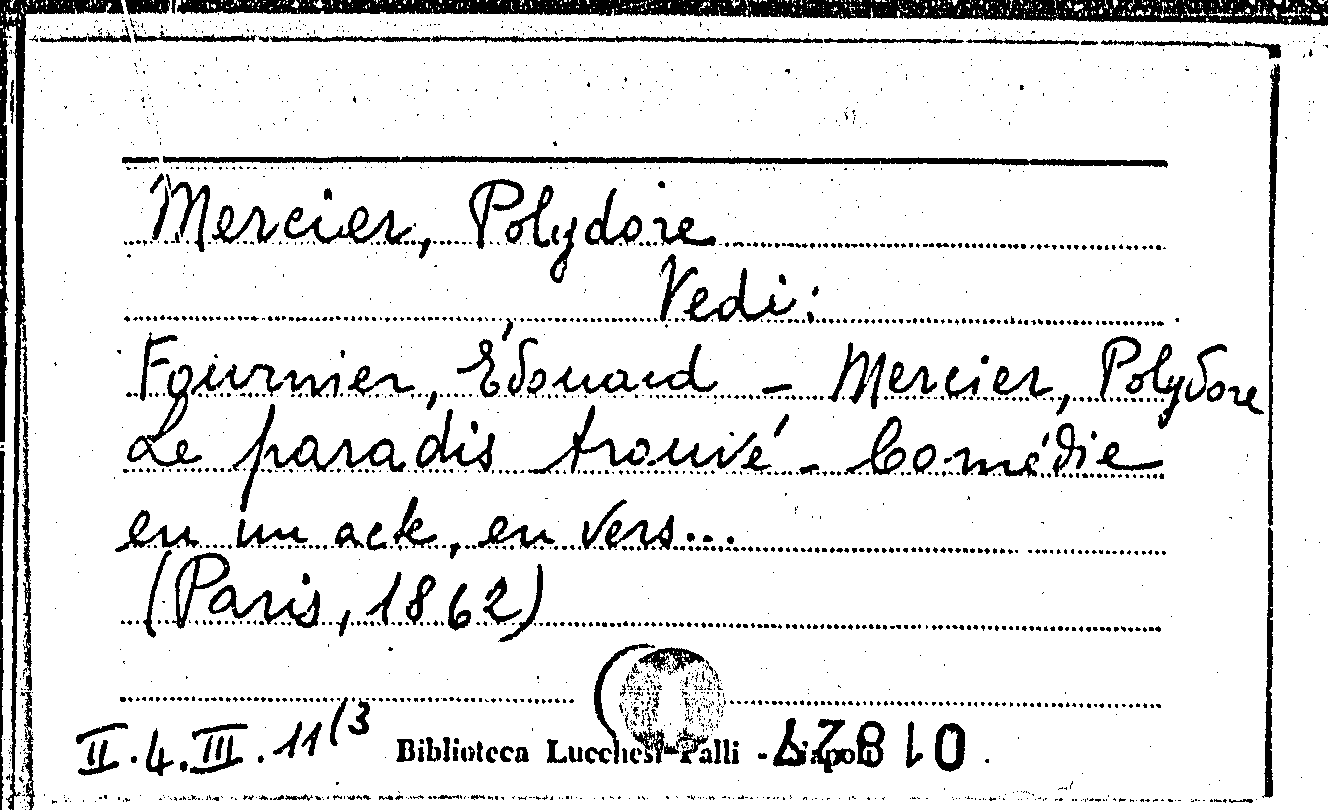 Mercier, Polydore
Vedi:
Fournier, Édouard - Mercier, Polydore
Le paradis trouvé - Comédie
en un acte, en vers...
(Paris, 1862)
II.4.III.11(3
Biblioteca Lucchesi-Palli - Napoli